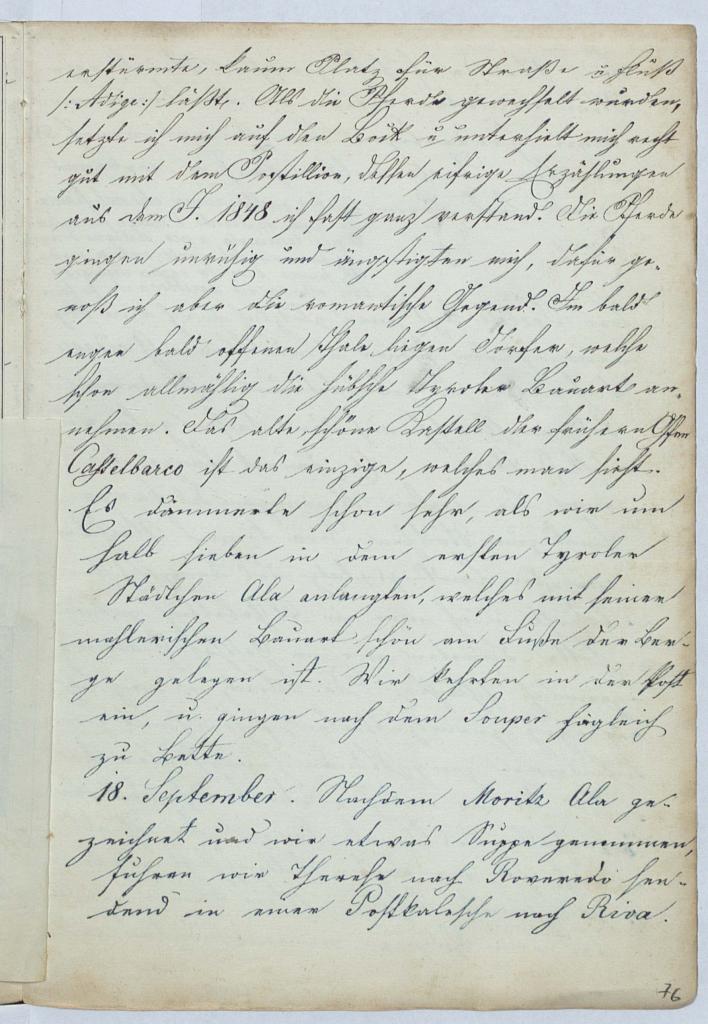 erstürmte, kaum Platz für Straße u Fluß
/: Adige :/ läßt. Als die Pferde gewechselt wurden,
setzte ich mich auf den Bock u unterhielt mich recht
gut mit dem Postillion, dessen eifrige Erzählungen
aus dem J. 1848 ich fast ganz verstand. Die Pferde
gingen unruhig und ängstigten mich, dafür ge-
noß ich aber die romantische Gegend. Im bald
engen bald offenen Thale liegen Dörfer, welche
schon allmählig die hübsche Tyroler Bauart an-
nehmen. Das alte schöne Kastell der frühern Gfen
Castelbarco ist das einzige, welches man sieht.
Es dämmerte schon sehr, als wir um
halb sieben in dem ersten Tyroler
Städtchen Ala anlangten, welches mit seiner
mahlerischen Bauart schön am Fuße der Ber-
ge gelegen ist. Wir kehrten in der Post
ein, u. gingen nach dem Souper sogleich
zu Bette.
18. September. Nachdem Moritz Ala ge-
zeichnet und wir etwas Suppe genommen,
fuhren wir Therese nach Roveredo sen-
dend in einer Postkalesche nach Riva.
76